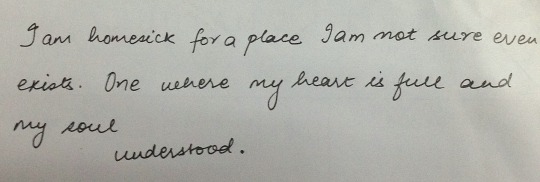 I am homesick for a place I am not sure even
exists. One where my heart is full and
my soul
understood.